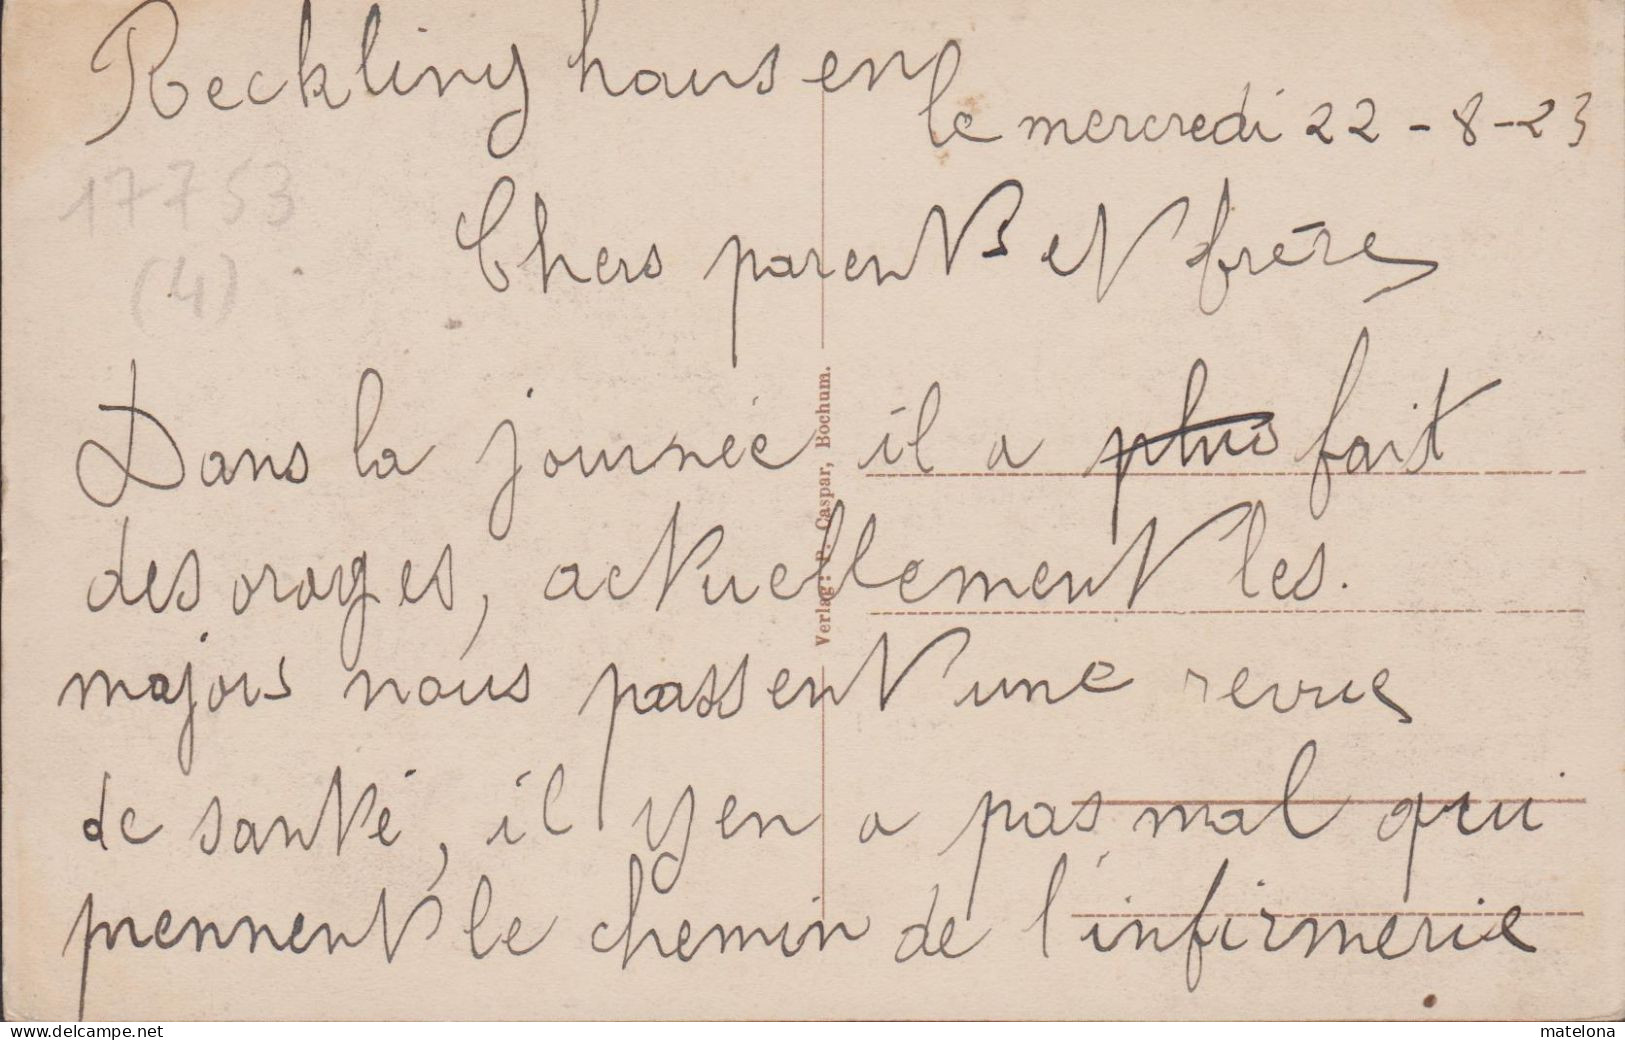 Recklinghausen
le mercredi 22-8-23
17753
(4)
Chers parents et frère
Dans la journée il a plus fait
des orages, actuellement les.
majors nous passent une revue
de santé, il y en a pas mal qui
prennent le chemin de l'infirmerie
Verlag: P. Caspar, Bochum.
www.delcampe.net
matelona